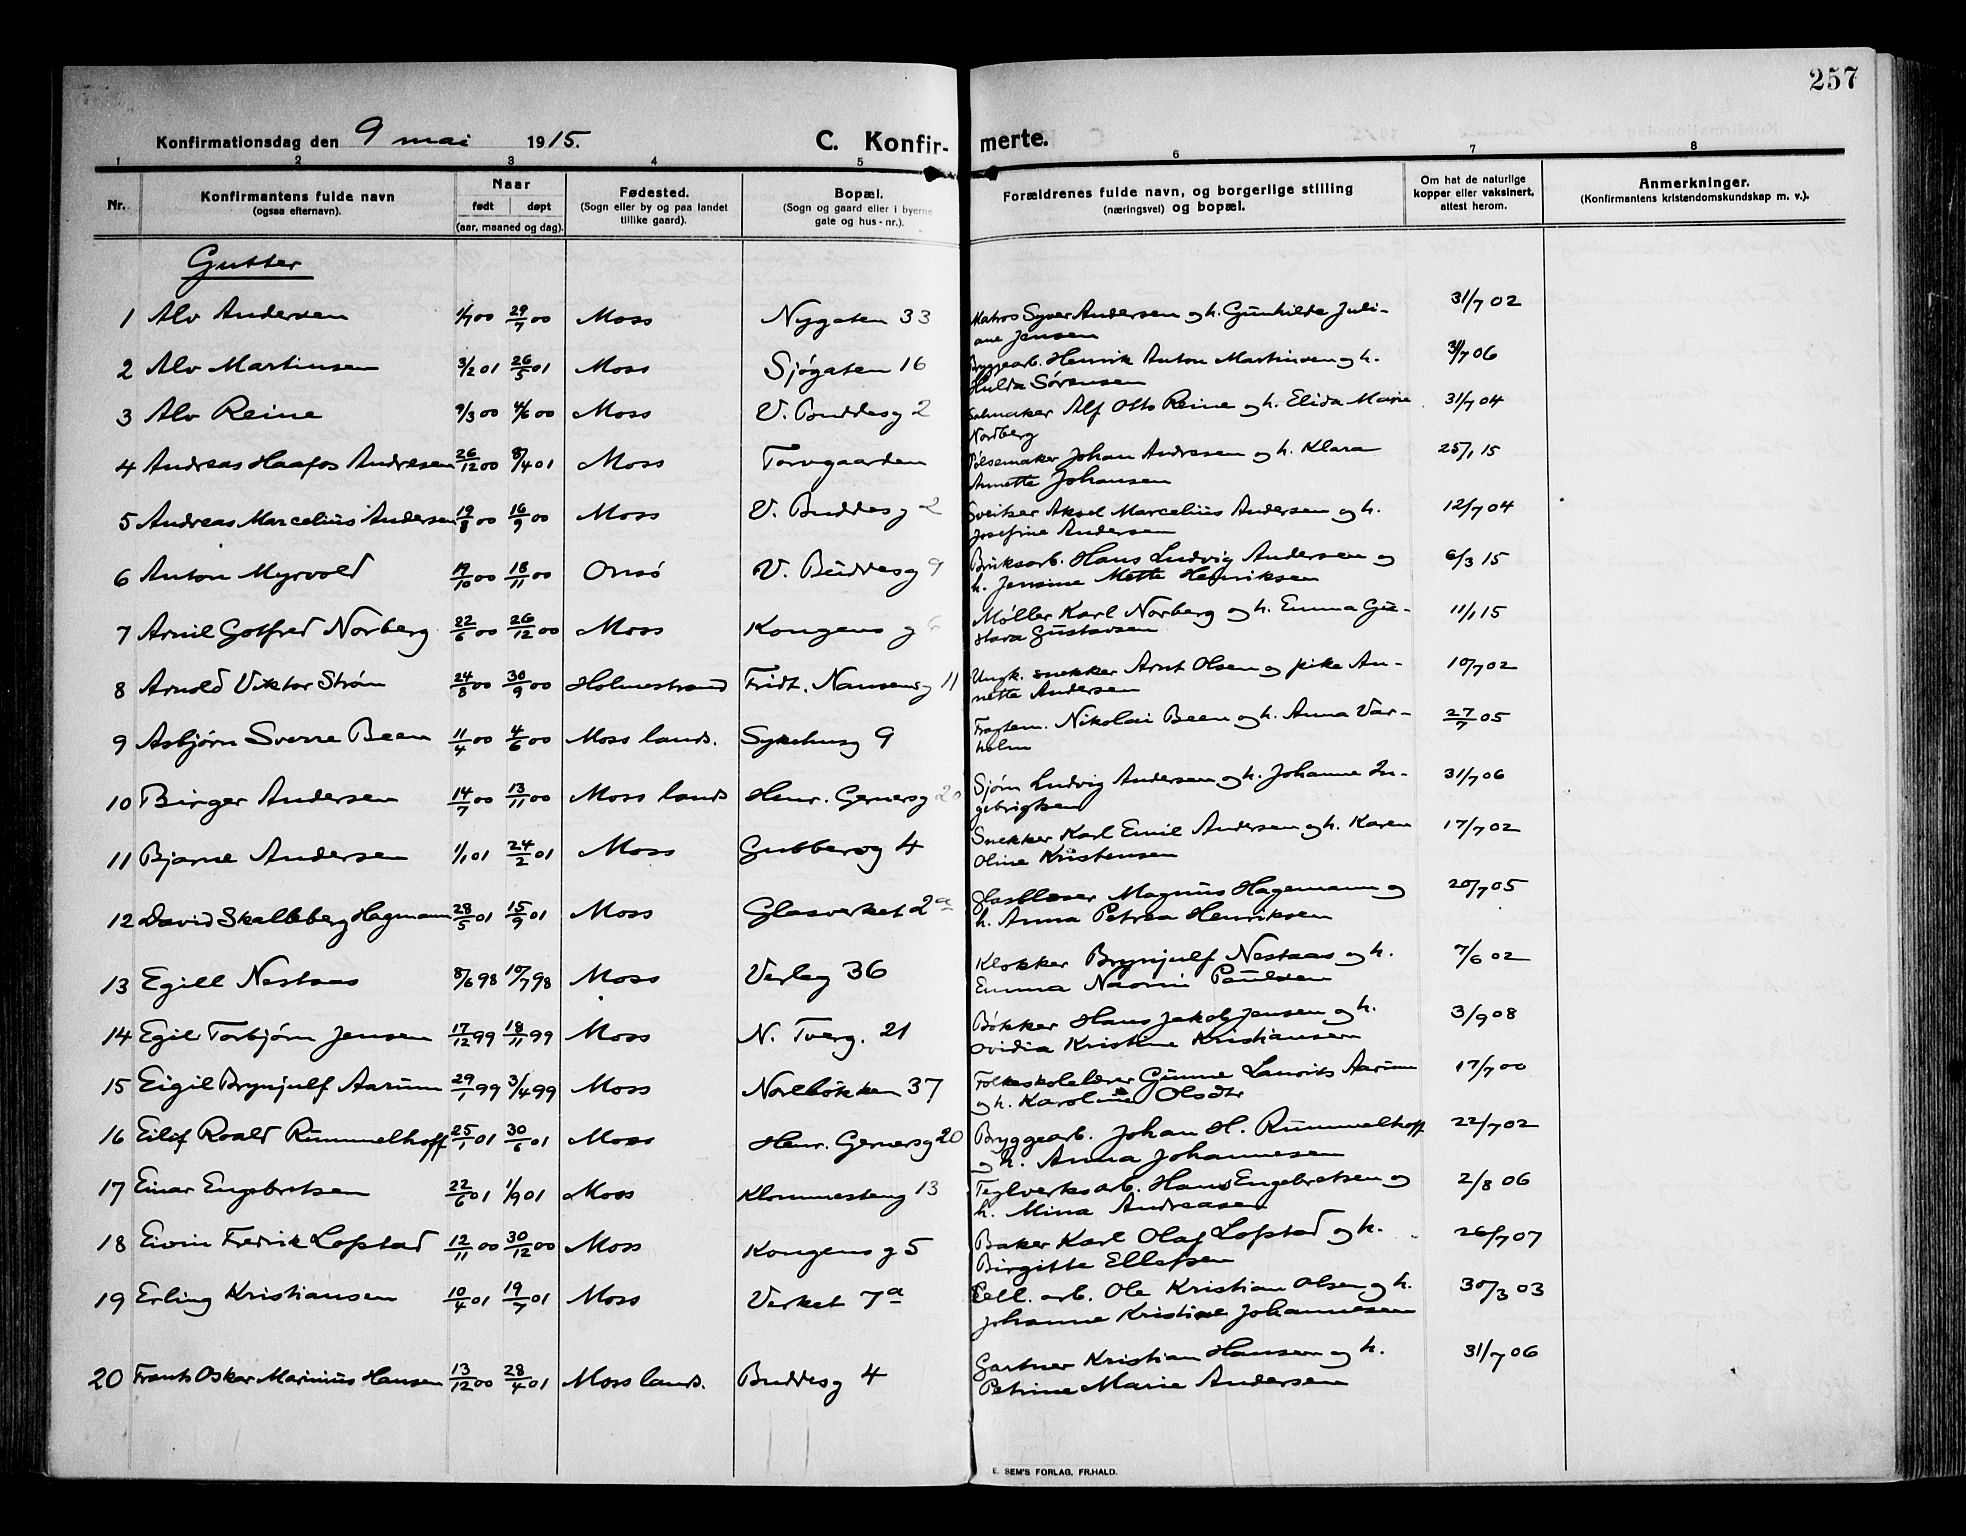 257
Konfirmationsdag den 9 mai 1915. C. Konfir- merte.
1 2 3 4 5 6 7 8
Nr. Konfirmantens fulde navn (ogsaa efternavn). Naar født døpt (aar, maaned og dag). Fødested. (Sogn eller by og paa landet tillike gaard). Bopæl. (Sogn og gaard eller i byerne gate og hus-nr.). Forældrenes fulde navn, og borgerlige stilling (næringsvei) og bopæl. Om hat de naturlige kopper eller vaksinert, attest herom. Anmerkninger. (Konfirmantens kristendomskundskap m. v.).
Gutter
1 Alv Andersen 1/7 00 29/7 00 Moss Nygaten 33 Matros Syver Andersen og h. Gunhilde Juli- 31/7 02
ane Jensen
2 Alv Martinsen 3/2 01 26/5 01 Moss Sjøgaten 16 Bryggearb. Henrik Anton Martinsen og h. 31/7 06
Hulda Sørensen
3 Alv Reine 9/3 00 4/6 00 Moss V. Buddesg 2 Salmaker Alf Otto Reine og h. Elida Marie 31/7 04
Nordberg
4 Andreas Haafos Andresen 26/12 00 8/4 01 Moss Torvgaarden Pølsemaker Johan Andresen og h. Klara 25/1 15
Annette Johansen
5 Andreas Marcelius Andersen 19/8 00 16/9 00 Moss V. Buddesg 2 Sveitser Aksel Marcelius Andersen og h. 12/7 04
Josefine Andersen
6 Anton Myrvold 19/10 00 18/11 00 Onsø V. Buddesg 9 Bruksarb. Hans Ludvig Andersen og 6/3 15
h. Jensine Mette Henriksen
7 Arnil Gotfred Norberg 22/6 00 26/12 00 Moss Kongens g 6 Møller Karl Norberg og h. Emma Gu- 11/1 15
stava Gustavsen
8 Arnold Viktor Strøm 24/8 00 30/9 00 Holmestrand Fridt. Nansensg 11 Ungk. snekker Arnt Olsen og pike An- 10/7 02
nette Andersen
9 Asbjørn Sverre Been 11/4 00 4/6 00 Moss lands. Sykehusg 9 Fragtem. Nikolai Been og h. Anna Var- 27/7 05
holm
10 Birger Andersen 14/7 00 13/11 00 Moss lands Henr. Gernersg 20 Sjøm Ludvig Andersen og h. Johanne In- 31/7 06
gebrigtsen
11 Bjarne Andersen 1/1 01 24/2 01 Moss Gubberog 4 Snekker Karl Emil Andersen og h. Karen 17/7 02
Oline Kristensen
12 David Skalleberg Hagmann 28/5 01 15/9 01 Moss Glasverket 2a Glasblæser Magnus Hagemann og 20/7 05
h. Anna Petrea Henriksen
13 Egill Nestaas 8/6 98 10/7 98 Moss Verleg 36 Klokker Brynjulf Nestaas og h. 7/6 02
Emma Naomi Paulsen
14 Egil Torbjørn Jensen 17/12 99 18/11 99 Moss N. Tverg. 21 Bøkker Hans Jakob Jensen og h. 3/9 08
Ovidia Kristine Kristiansen
15 Eigil Brynjulf Aarum 29/1 99 3/4 99 Moss Noreløkken 37 Folkeskolelærer Gunne Laurits Aarum 17/7 00
og h. Karoline Olsdtr
16 Eilif Roald Rummelhoff 25/1 01 30/6 01 Moss Henr. Gernersg 20 Bryggearb. Johan H. Rummelhoff 22/7 02
og h. Anna Johannesen
17 Einar Engebretsen 22/6 01 1/9 01 Moss Klommesteng 13 Teglverksarb. Hans Engebretsen og 2/8 06
h. Mina Andreasen
18 Eivin Fredrik Lofstad 12/11 00 30/12 00 Moss Kongens g 5 Baker Karl Olaf Lofstad og h. 26/7 07
Birgitte Ellefsen
19 Erling Kristiansen 10/4 01 19/7 01 Moss Verket 7a Cell. arb. Ole Kristian Olsen og h. 30/3 03
Johanne Kristine Johannesen
20 Frants Oskar Marinius Hansen 13/12 00 28/4 01 Moss lands. Buddesg 4 Gartner Kristian Hansen og h. 31/7 06
Petrine Marie Andersen
E. SEM'S FORLAG, FR.HALD.